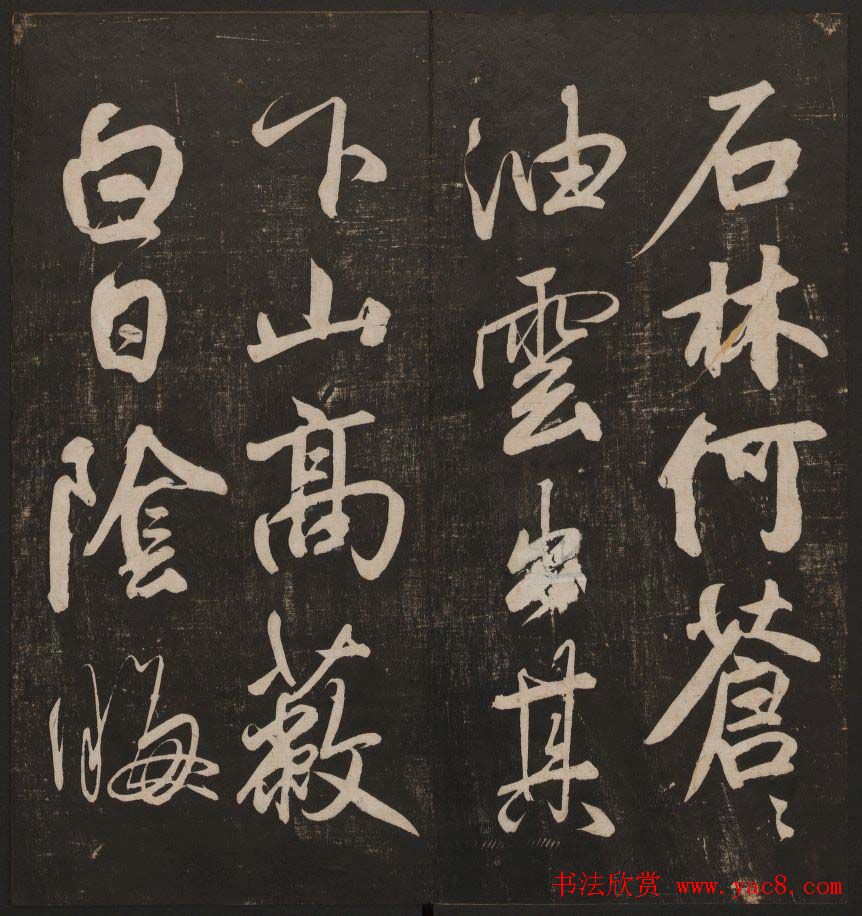 石林何蒼〻
油雲出其
下山高蔽
白日陰晦
书法欣赏 www.yac8.com